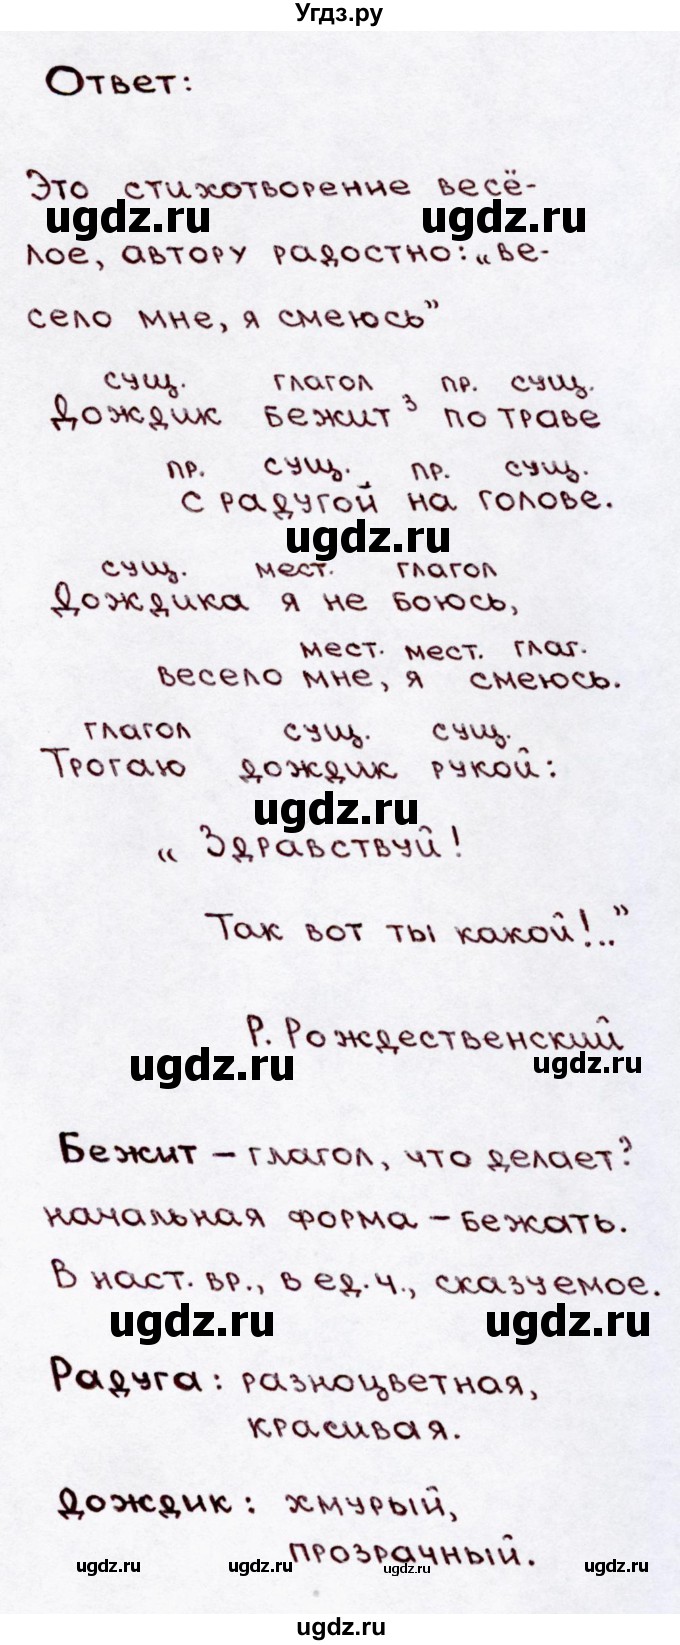 Угдз.ру
Ответ:
Это стихотворение весё-
ugdz.ru ugdz.ru
лое, автору радостно: „ве-
село мне, я смеюсь”
сущ. глагол пр. сущ.
Дождик бежит ³ по траве
пр. сущ. пр. сущ.
с радугой на голове.
ugdz.ru
сущ. мест. глагол
Дождика я не боюсь,
мест. мест. глаг.
весело мне, я смеюсь.
глагол сущ. сущ.
Трогаю дождик рукой:
ugdz.ru
„ Здравствуй!
Так вот ты какой!..”
Р. Рождественский
ugdz.ru ugdz.ru
Бежит – глагол, что делает?
начальная форма – бежать.
В наст. вр., в ед. ч., сказуемое.
ugdz.ru ugdz.ru
Радуга: разноцветная,
красивая.
Дождик: хмурый,
прозрачный.
ugdz.ru ugdz.ru ugdz.ru ugdz.ru
ugdz.ru